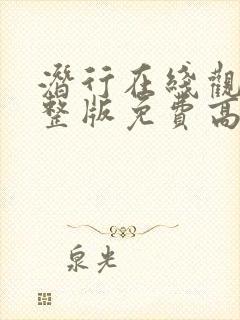 潛行在綫觀
整版免費高
泉光